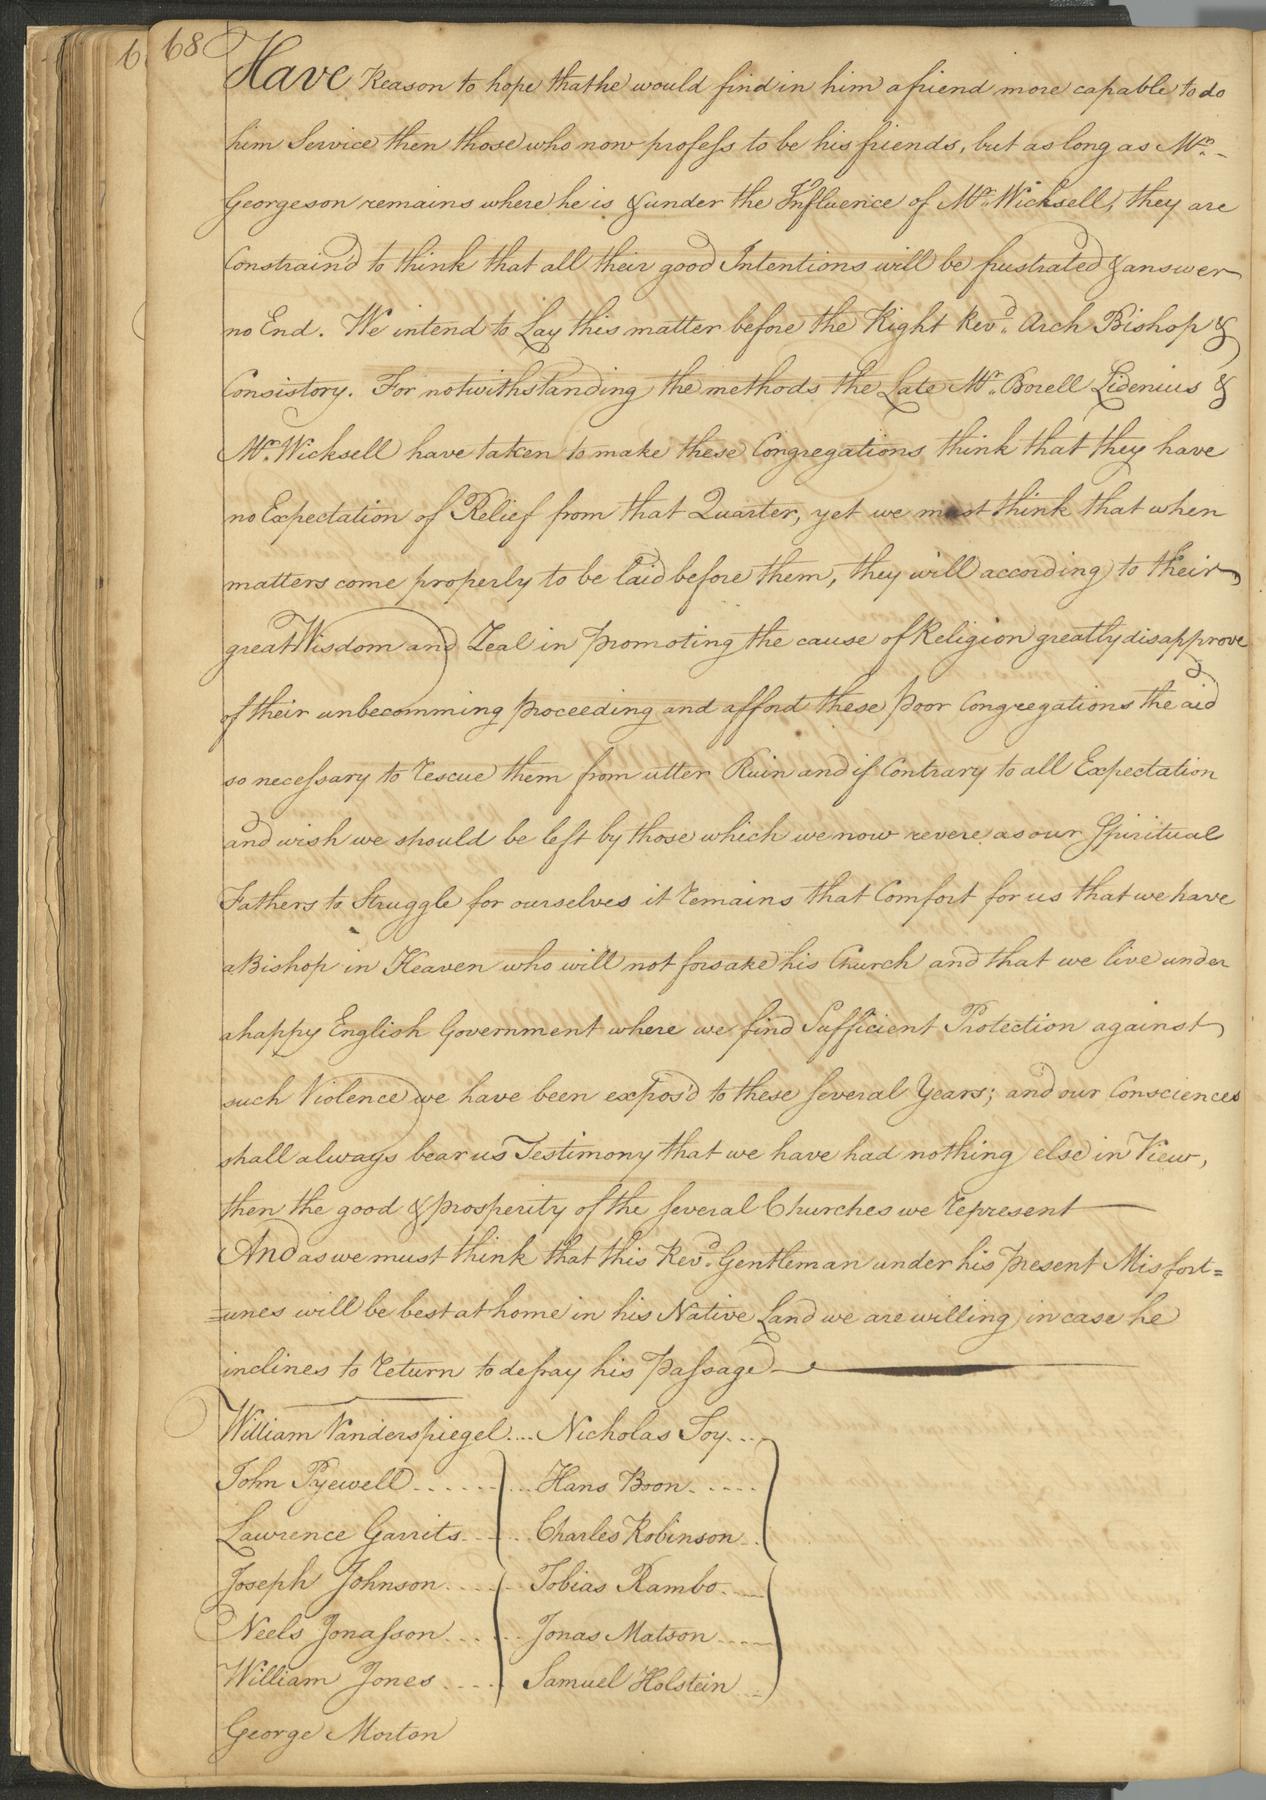 68
Have Reason to hope that he would find in him a friend more capable to do
him Service then those who now profess to be his friends, but as long as Mr. -
Georgeson remains where he is & under the Influence of Mr. Wicksell, they are
Constrain'd to think that all their good Intentions will be frustrated & answer
no End. We intend to Lay this matter before the Right Revd. Arch Bishop &
Consistory. For notwithstanding the methods the Late Mr. Borell Lidenius &
Mr. Wicksell have taken to make these Congregations think that they have
no Expectation of Relief from that Quarter, yet we must think that when
matters come properly to be laid before them, they will according to their
great Wisdom and Zeal in promoting the cause of Religion greatly disapprove
of their unbecomming proceeding and afford these poor Congregations the aid
so necessary to rescue them from utter Ruin and if Contrary to all Expectation
and wish we should be left by those which we now revere as our Spiritual
Fathers to Struggle for ourselves it remains that Comfort for us that we have
a Bishop in Heaven who will not forsake his Church and that we live under
a happy English Government where we find Sufficient Protection against
such Violence we have been expos'd to these several Years; and our Consciences
shall always bear us Testimony that we have had nothing else in View,
then the good & prosperity of the several Churches we represent
And as we must think that this Revd. Gentleman under his present Misfort=
=unes will be best at home in his Native Land we are willing in case he
inclines to return to defray his Passage
William Vanderspiegel .... Nicholas Soy....
John Pyewell ........ Hans Boon.....
Lawrence Garrits..... Charles Robinson..
Joseph Johnson..... Tobias Rambo....
Neels Jonasson..... Jonas Matson....
William Jones.... Samuel Holstein..
George Morton